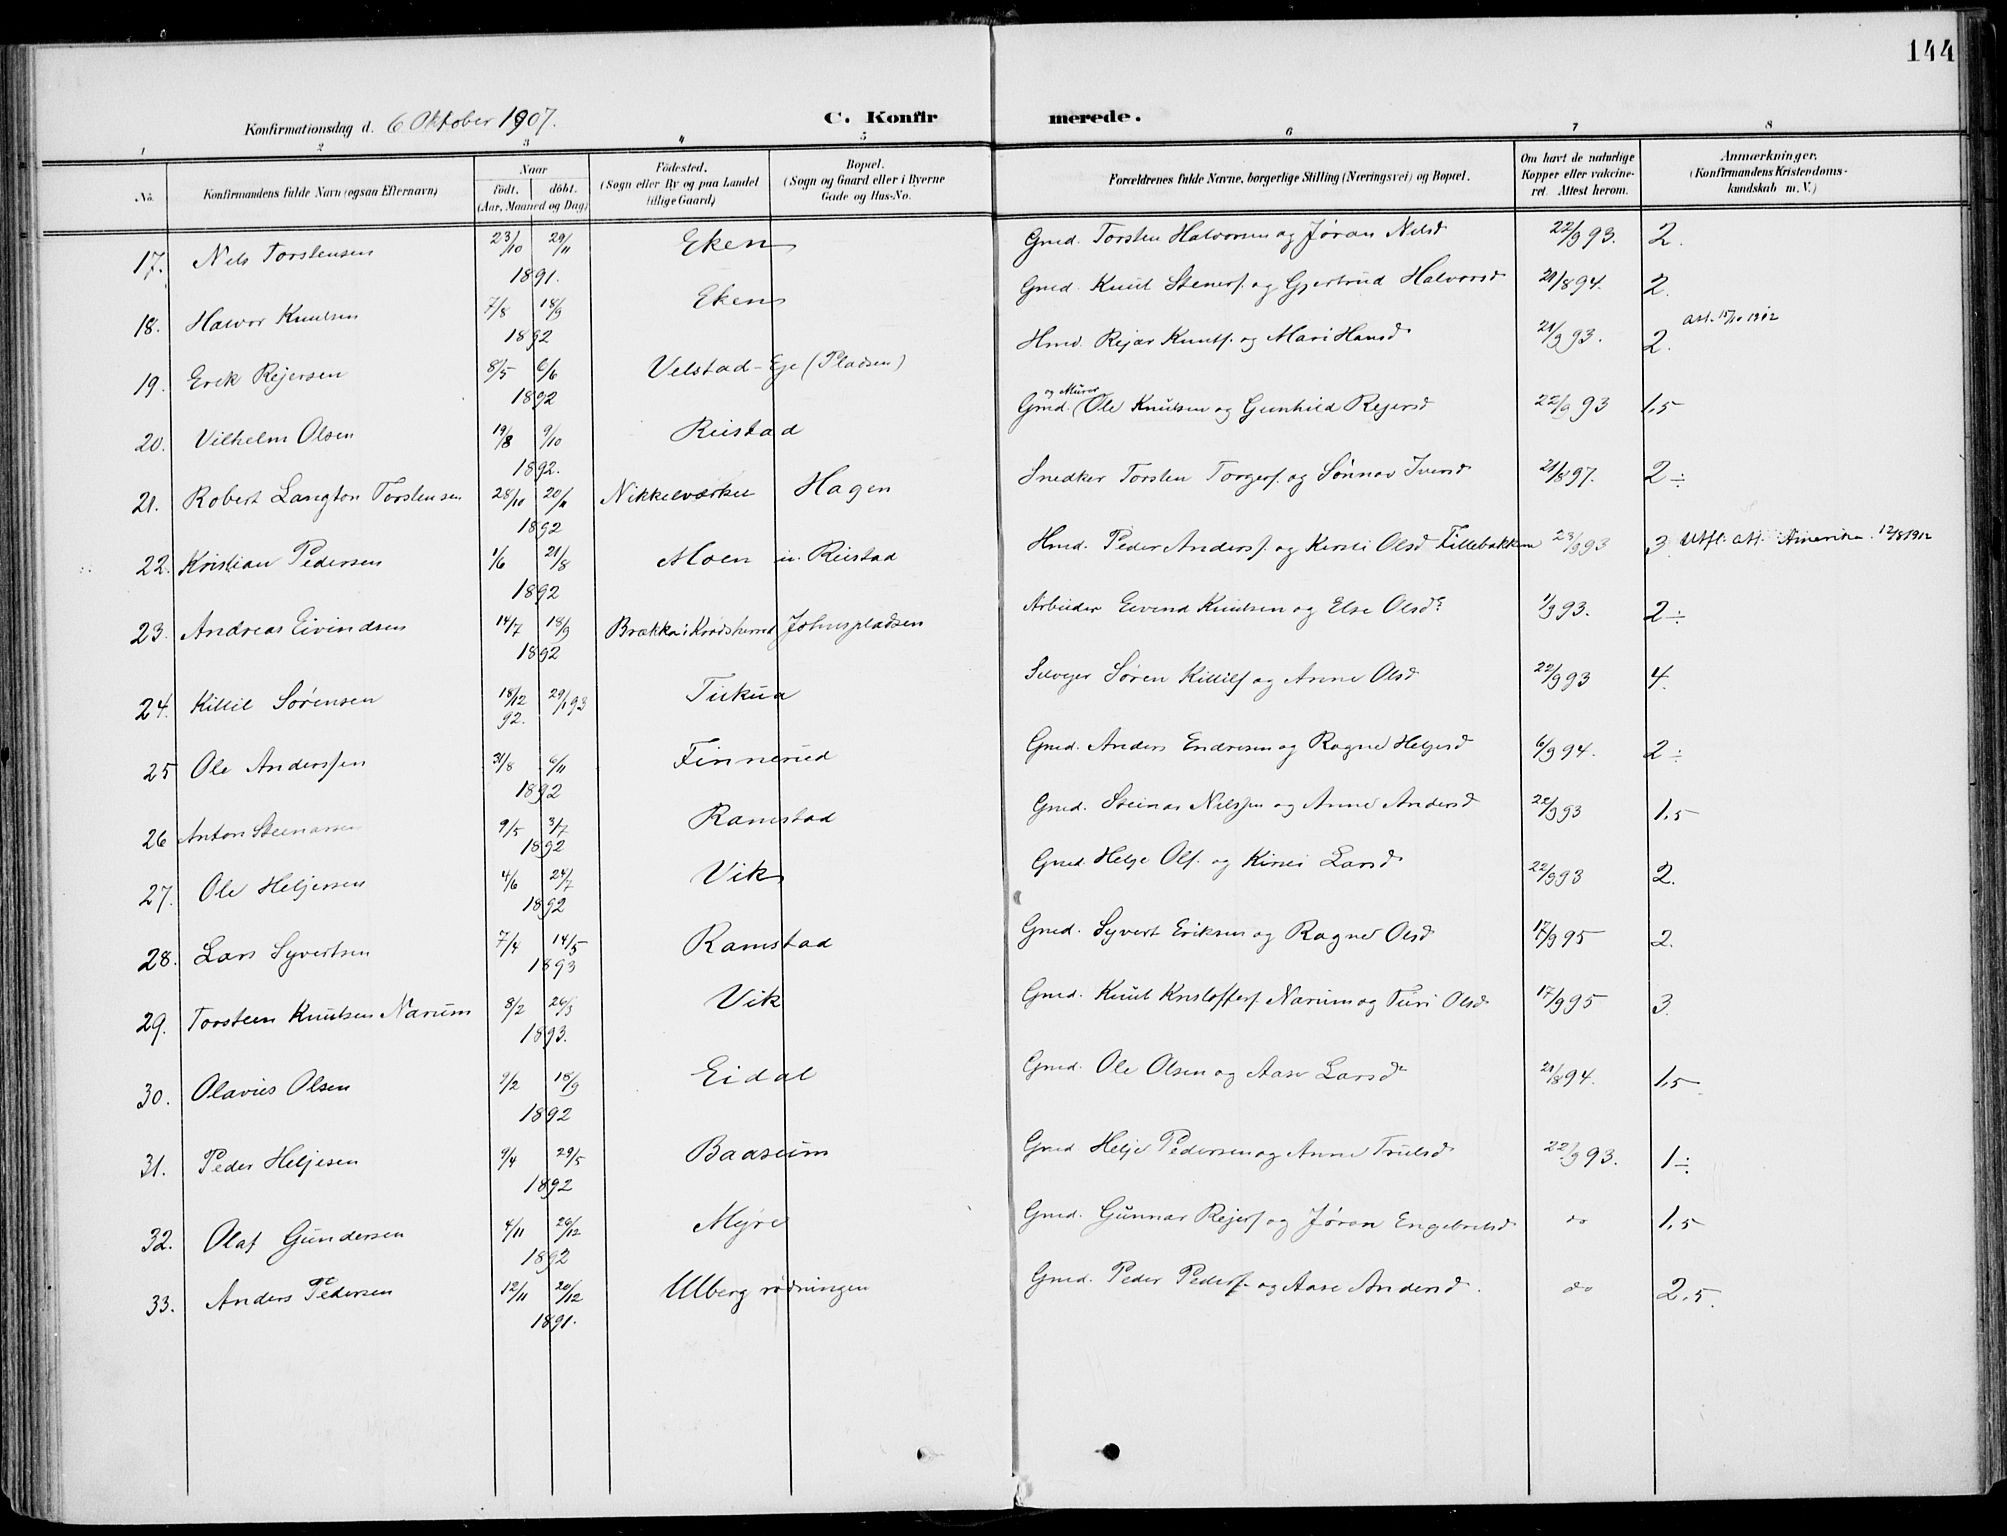 144
Konfirmationsdag d. 6 Oktober 1907.
C. Konfirmerede.
1 2 3 4 5 6 7 8
No.
Konfirmandens fulde Navn (ogsaa Efternavn)
Naar
født. døbt.
(Aar, Maaned og Dag)
Fødested.
(Sogn eller By og paa Landet
tillige Gaard)
Bopæl.
(Sogn og Gaard eller i Byerne
Gade og Hus-No.
Forældrenes fulde Navne, borgerlige Stilling (Næringsvei) og Bopæl.
Om havt de naturlige
Kopper eller vakcine-
ret. Attest herom.
Anmærkninger.
(Konfirmandens Kristendoms-
kundskab m. V.)
17. Nels Torstensen 23/10 29/11 1891. Eken Gmd. Torsten Halvorsen og Jøran Nelsd 22/9 93. 2.
18. Halvor Knutsen 7/8 18/9 1892 Eken Gmd. Knut Stenersf. og Gjertrud Halvorsd 21/8 94. 2.
19. Erek Rejersen 8/5 6/6 1892 Velstad-Eje (Pladsen) Hmd. Rejar Knutsf. og Mari Hansd 21/9 93. 2. att. 15/10 1912
20. Vilhelm Olsen 19/8 9/10 1892. Reistad Gmd. og Murer Ole Knutsen og Gunhild Rejersd 22/9 93 1,5
21. Robert Langton Torstensen 28/10 20/11 1892 Nikkelværket Hagen Snedker Torsten Torgersf. og Sønnav Iversd 21/8 97. 2 ÷
22. Kristian Pedersen 1/6 21/8 1892 Moen u. Reistad Hmd. Peder Andersf. og Kersti Olsd Fillebakken 23/9 93 3 Utfl. att. Amerika. 12/8 1912
23. Andreas Eivindsen 14/7 18/9 1892 Brækka i Krødsherred Johnspladsen Arbeider Eivend Knutsen og Else Olsd 1/9 93. 2 ÷
24. Killil Sørensen 18/12 92. 29/1 93 Tuskua Selvejer Søren Killilsf og Anne Olsd 22/9 93 4.
25 Ole Anderssen 31/8 6/11 1892 Finnerud Gmd. Anders Endresen og Ragne Heljesd 6/9 94. 2 ÷
26 Anton Steenarsen 9/5 3/7 1892 Ramstad Gmd. Steinar Nilssen og Anne Andersd 22/9 93 1,5
27. Ole Heljesen 4/6 24/7 1892 Vik Gmd. Helje Olsf. og Kirsti Larsd 22/9 93 2.
28. Lars Syvertsen 7/4 14/5 1893 Ramstad Gmd. Syvert Eriksen og Ragne Olsd 17/9 95 2.
29. Torsteen Knutsen Narum 8/2 26/3 1893. Vik Gmd. Knut Kristoffersf. Narum og Turi Olsd 17/9 95 3.
30. Olavus Olsen 9/2 18/9 1892 Eidal Gmd. Ole Olsen og Aase Larsd 21/8 94. 1,5
31. Peder Heljesen 9/4 29/5 1892 Baasum Gmd Helje Pedersen og Anne Trulsd 22/9 93. 1 ÷
32. Olaf Gundersen 4/11 26/12 1892 Myre Gmd. Gunnar Rejersf og Jøran Engebretsd do 1,5
33. Anders Pedersen 12/11 20/12 1891. Ulberg rødningen Gmd. Peder Pedersf. og Aase Andersd. do 2,5.